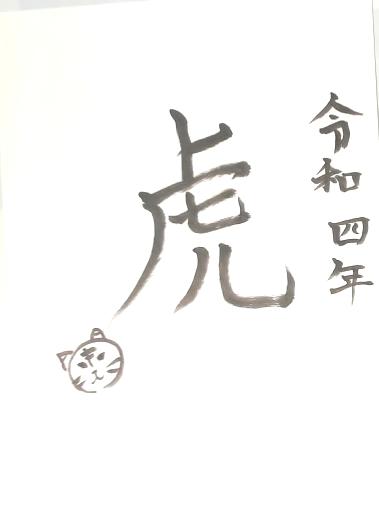 令和四年
虎